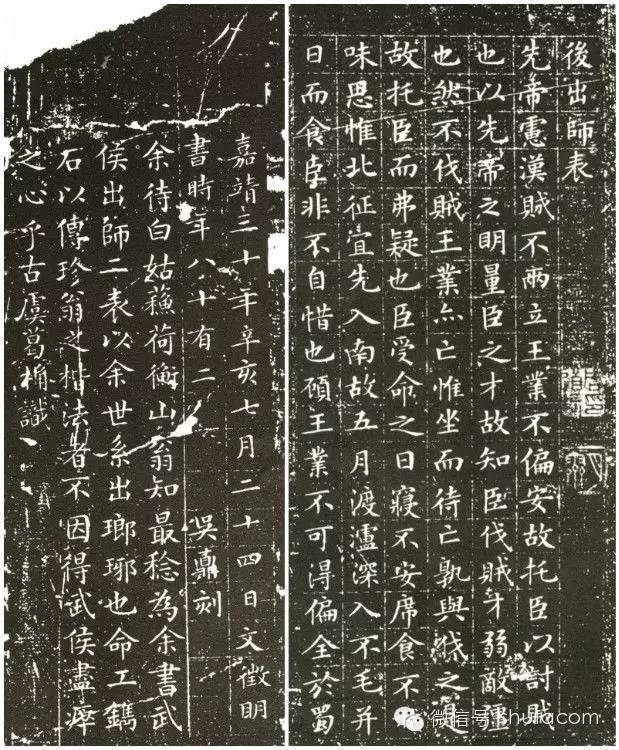 後出師表
先帝慮漢賊不兩立王業不偏安故托臣以討賊
也以先帝之明量臣之才故知臣伐賊才弱敵彊
也然不伐賊王業亦亡惟坐而待亡孰與伐之是
故托臣而弗疑也臣受命之日寢不安席食不
味思惟北征宜先入南故五月渡瀘深入不毛并
日而食臣非不自惜也顧王業不可得偏全於蜀
嘉靖三十年辛亥七月二十四日文徵明
書時年八十有二 吳鼒刻
余待白姑蘓荷衡山翁知最稔為余書武
侯出師二表以余世系出瑯琊也命工鐫
石以傳珍翁之楷法者不因得武侯盡瘁
之心乎古虞葛桷識
微信号:shufacom